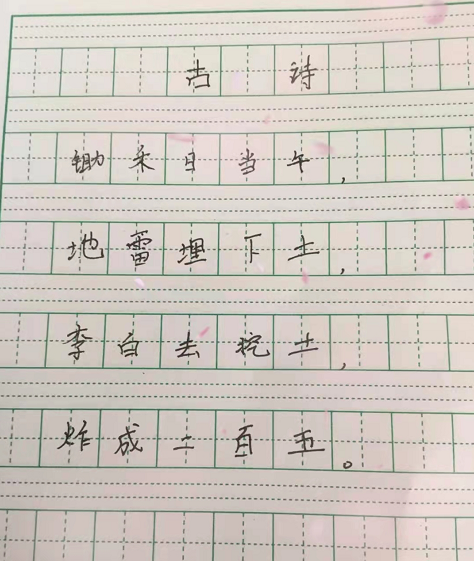 古 诗
锄禾日当午,
地雷埋下土,
李白去挖土,
炸成二百五。